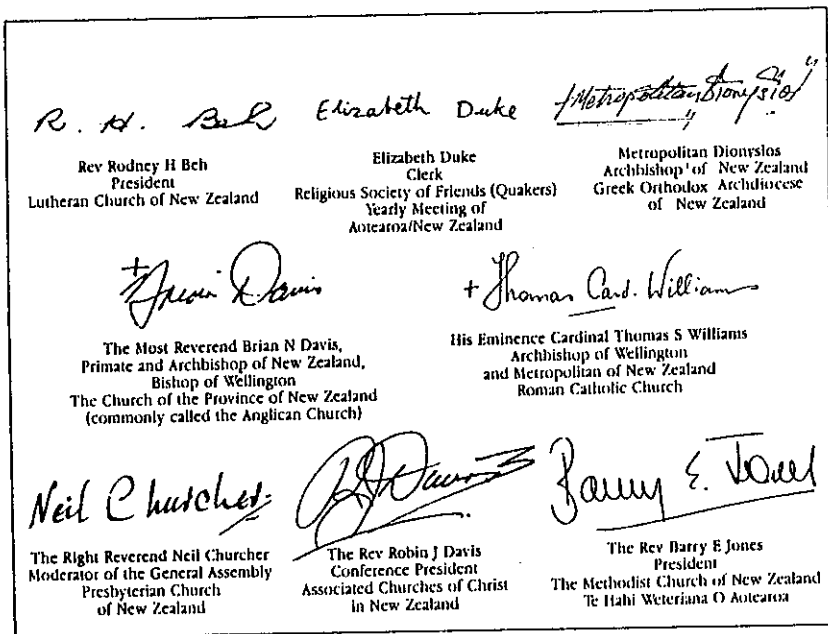 R. H. Beh
Rev Rodney H Beh
President
Lutheran Church of New Zealand
Elizabeth Duke
Elizabeth Duke
Clerk
Religious Society of Friends (Quakers)
Yearly Meeting of
Aotearoa/New Zealand
+Metropolitan Dionysios
Metropolitan Dionysios
Archbishop of New Zealand
Greek Orthodox Archdiocese
of New Zealand
+ Brian Davis
The Most Reverend Brian N Davis,
Primate and Archbishop of New Zealand,
Bishop of Wellington
The Church of the Province of New Zealand
(commonly called the Anglican Church)
+ Thomas Card. Williams
His Eminence Cardinal Thomas S Williams
Archbishop of Wellington
and Metropolitan of New Zealand
Roman Catholic Church
Neil Churcher
The Right Reverend Neil Churcher
Moderator of the General Assembly
Presbyterian Church
of New Zealand
RJ Davis
The Rev Robin J Davis
Conference President
Associated Churches of Christ
in New Zealand
Barry E. Jones
The Rev Barry E Jones
President
The Methodist Church of New Zealand
Te Hahi Weteriana O Aotearoa